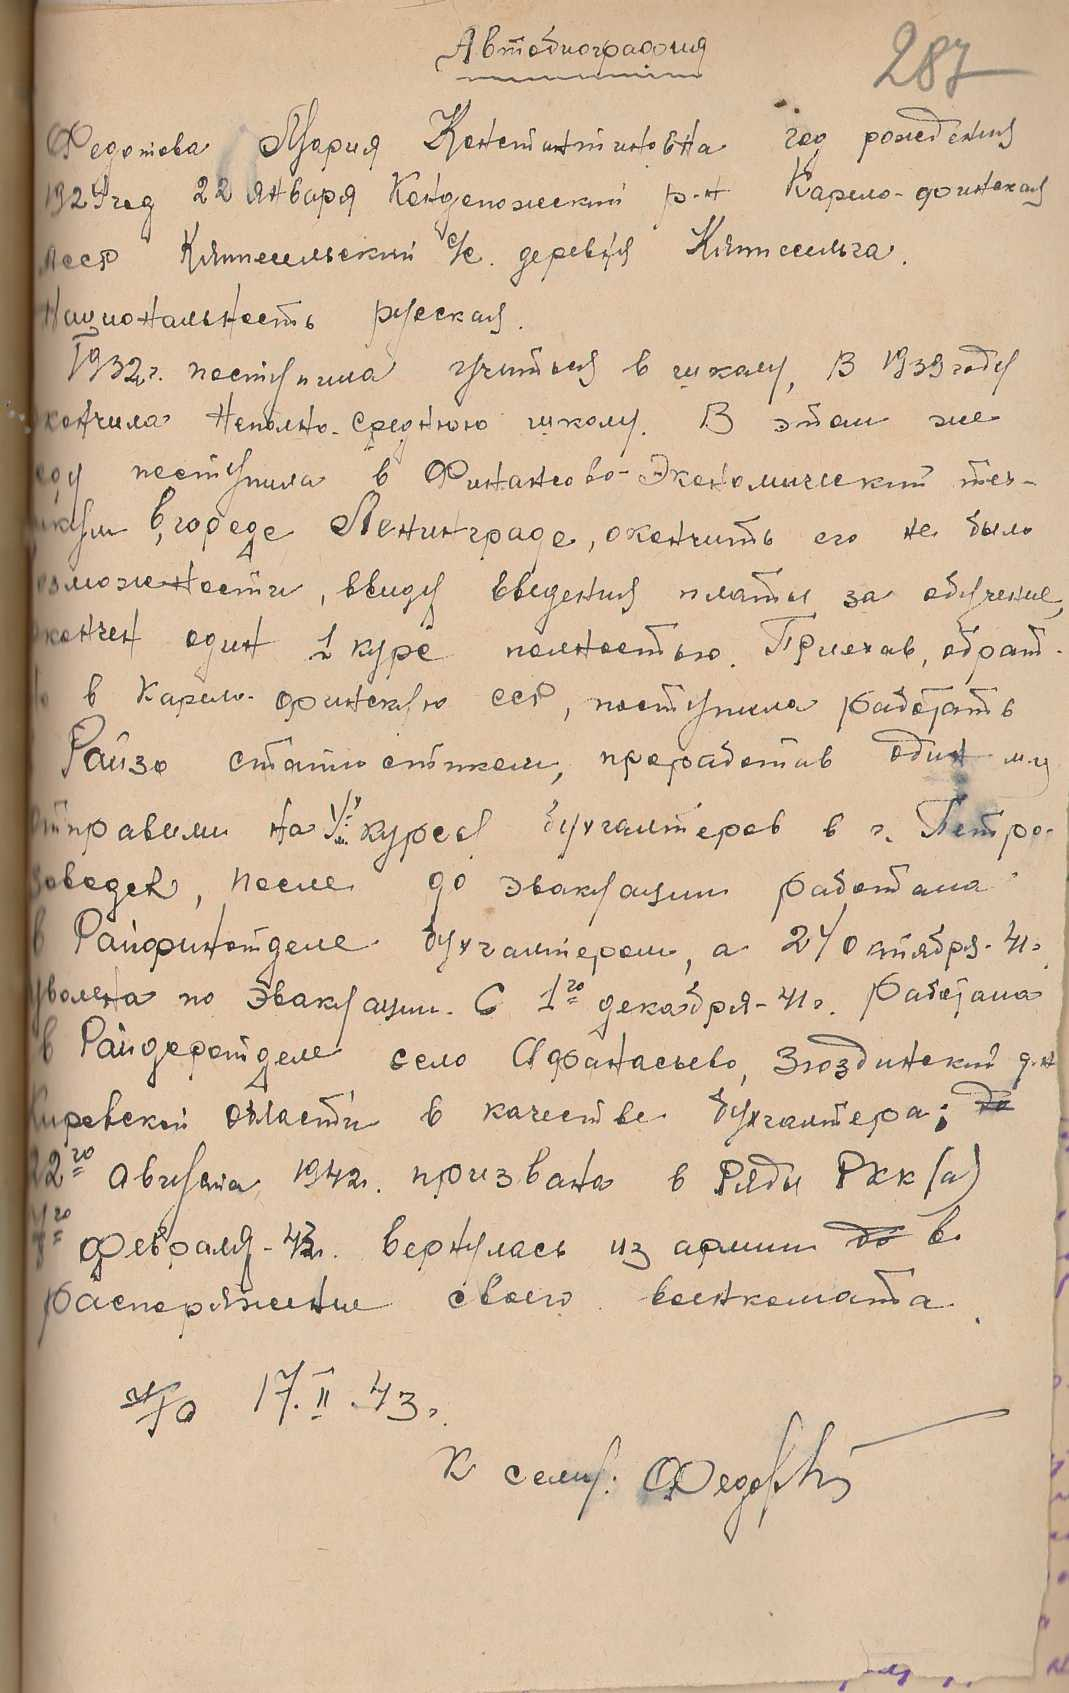 Автобиография
287
Федотова Мария Константиновна год рождения
1924 год 22 января Кондопожский р-н Карело-финская
ССР Кяппесельский с/с. деревня Кяппесельга.
Национальность русская.
1932г. поступила учиться в школу, В 1939 году
кончила Неполно-Среднюю школу. В этом же
году поступила в Финансово-Экономический тех-
никум в городе Ленинграде, окончить его не было
возможности, ввиду введения платы за обучение,
окончен один 1 курс полностью. Приехав, обрат-
но в Карело-финскую ССР, поступила работать
Райзо статистиком, проработав один м-ц
отправили на курсы бухгалтеров в г. Петро-
заводск, после до эвакуации работала
в Райфинотделе бухгалтером, а 24 октября-41г.
уволена по эвакуации. С 1го декабря-41г. Работала
в Райдоротделе село Афанасьево, Зюздинский р-н
Кировской области в качестве бухгалтера; до
22го августа 1942г. призвана в Ряды РКК(а)
февраля-43г. вернулась из армии до в
распоряжение своего военкомата.
17.II.43г.
К сему: Федот